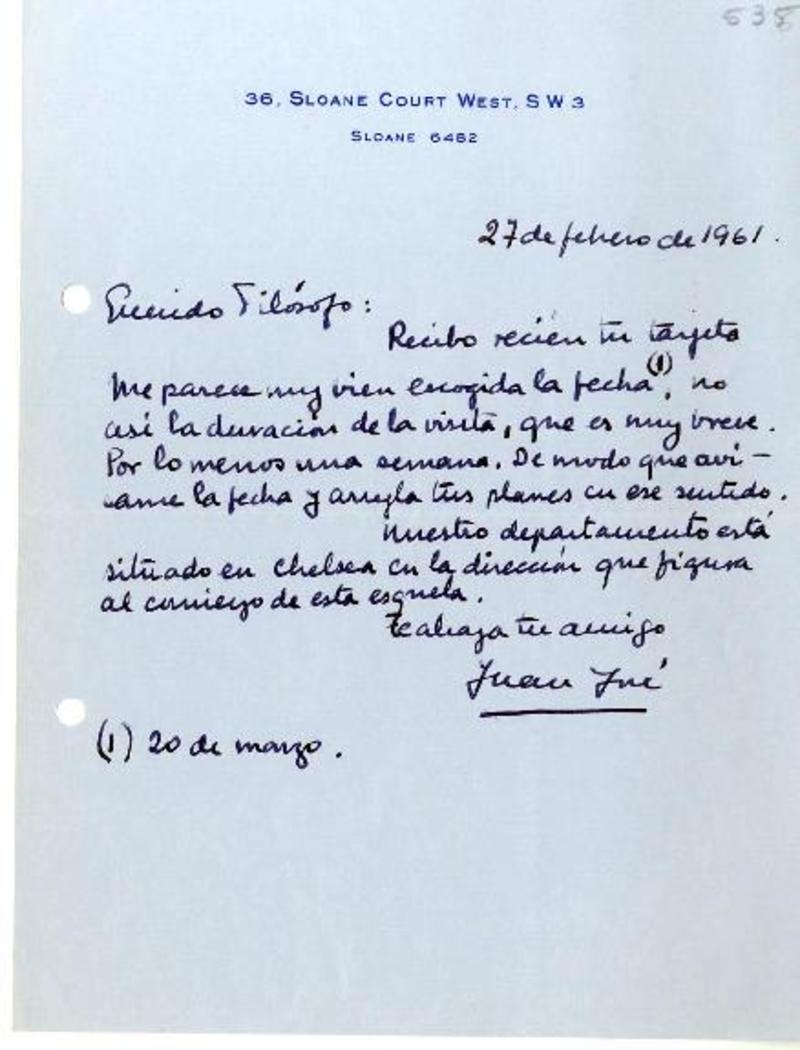 535
36, SLOANE COURT WEST, S W 3
SLOANE 6482
27 de febrero de 1961.
Querido Filósofo:
Recibo recién tu tarjeta
Me parece muy bien escogida la fecha(1), no
así la duración de la visita, que es muy breve.
Por lo menos una semana. De modo que aví-
same la fecha y arregla tus planes en ese sentido.
Nuestro departamento está
situado en Chelsea en la dirección que figura
al comienzo de esta esquela.
Te abraza tu amigo
Juan José
(1) 20 de marzo.